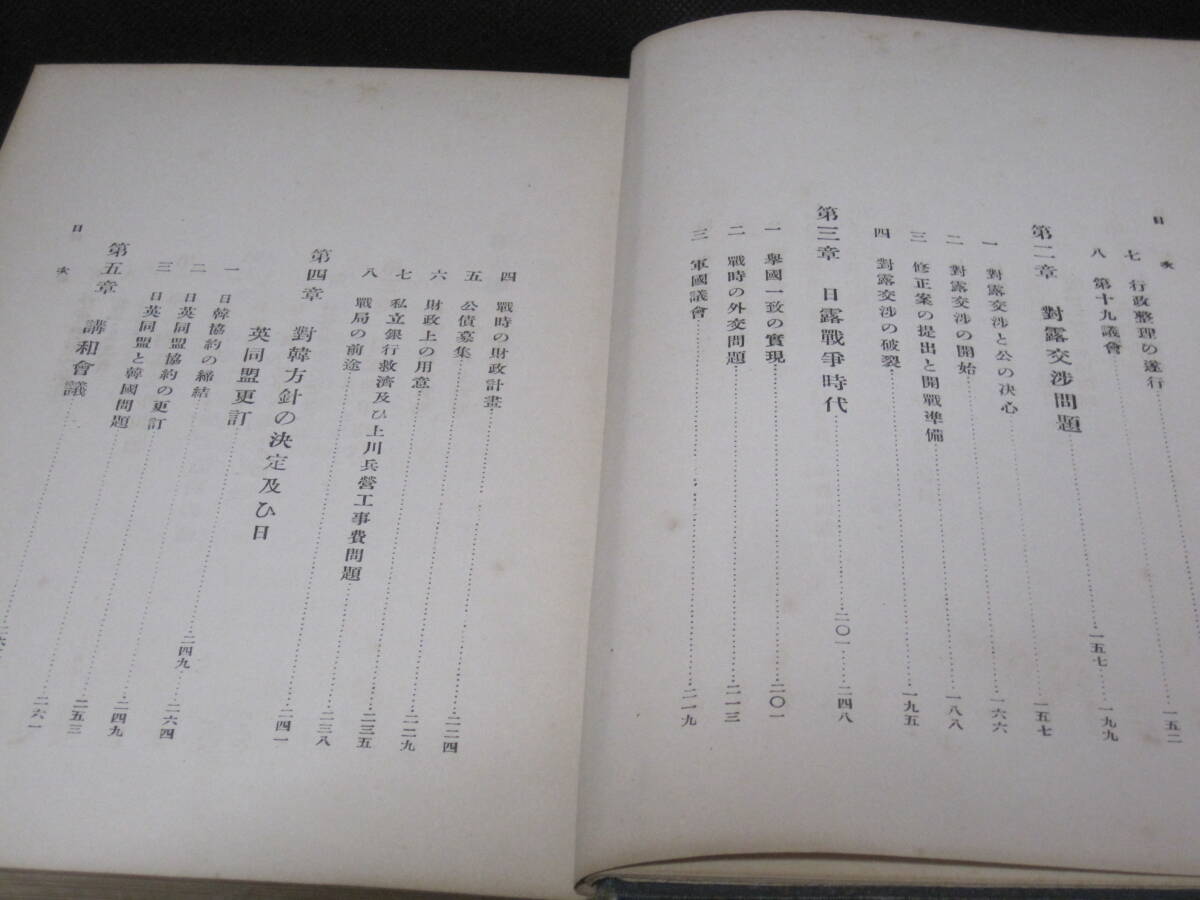 目次
七 行政整理の遂行
八 第十九議會……一五二
第二章 對露交渉問題……一五七……一九九
一 對露交渉と公の决心……一五七
二 對露交渉の開始……一六六
三 修正案の提出と開戰準備……一八八
四 對露交渉の破裂……一九五
第三章 日露戰爭時代……二〇一……二四八
一 擧國一致の實現……二〇一
二 戰時の外交問題……二一三
三 軍國議會……二一九
四 戰時の財政計畫……二二四
五 公債募集……二二九
六 財政上の用意……二三五
七 私立銀行救濟及ひ上川兵營工事費問題……二三八
八 戰局の前途……二四一
第四章 對韓方針の決定及ひ日
英同盟更訂……二四九……二六四
一 日韓協約の締結……二四九
二 日英同盟協約の更訂……二五三
三 日英同盟と韓國問題……二六一
第五章 講和會議
目次